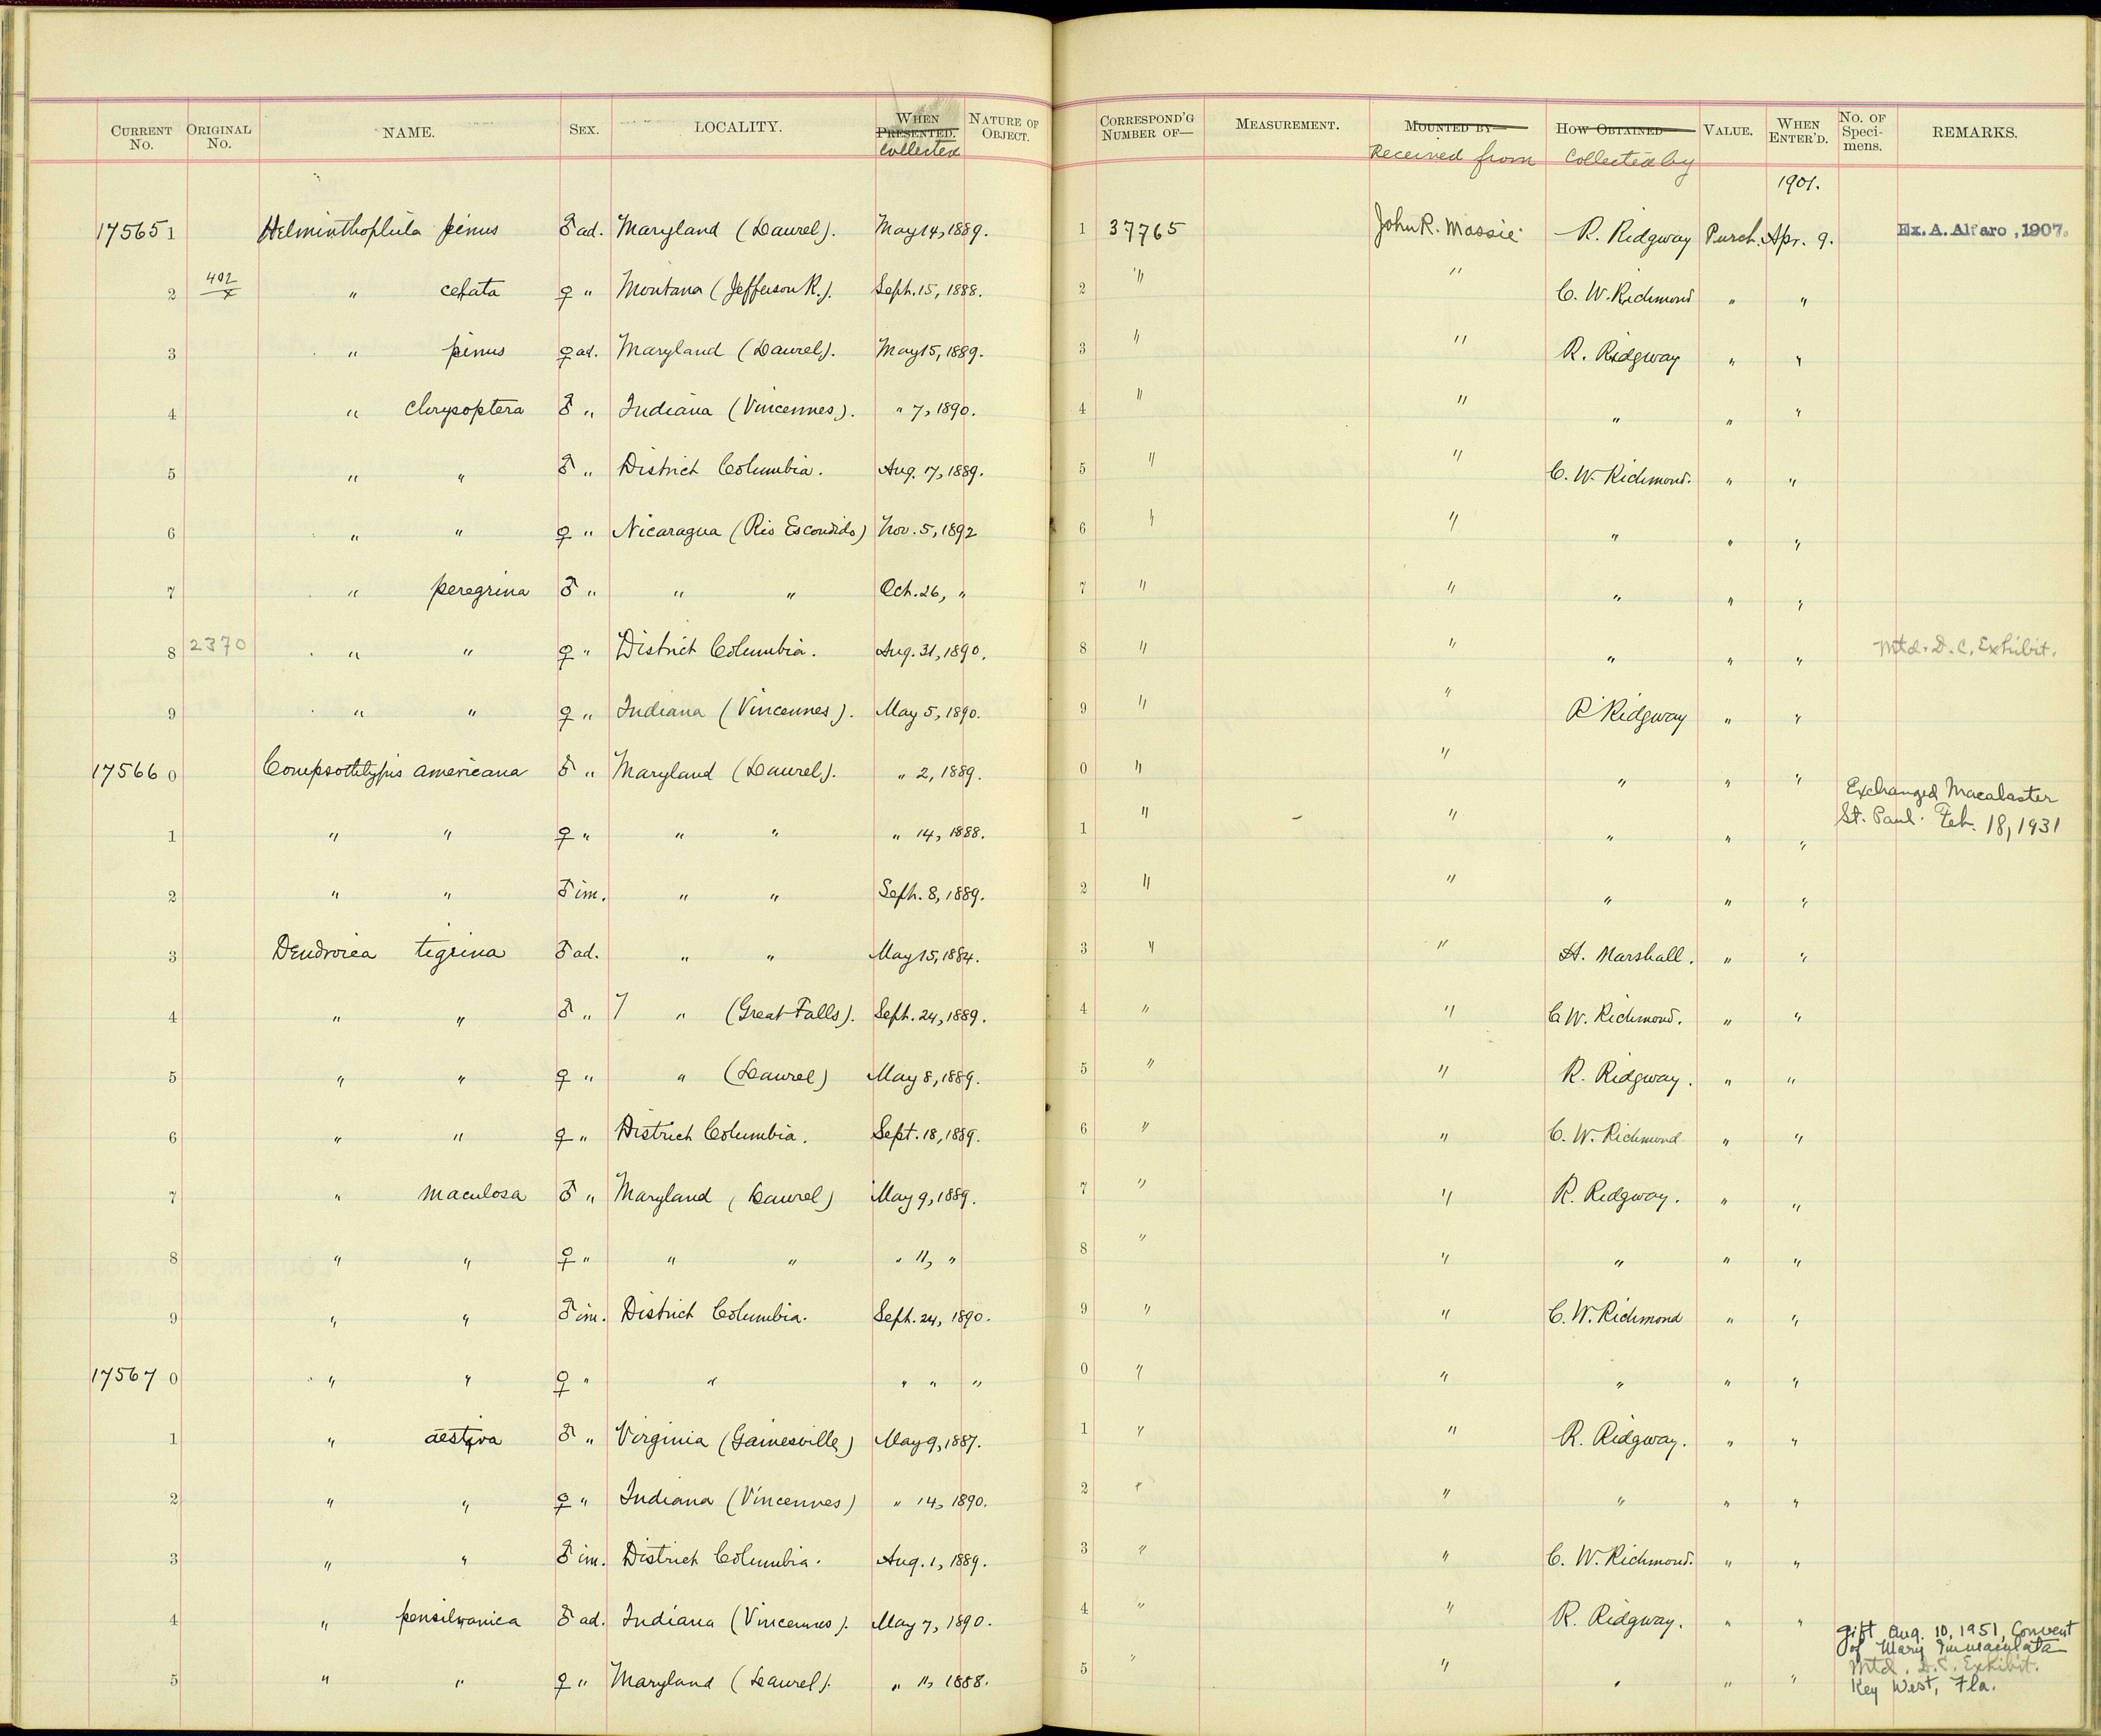 CURRENT No. ORIGINAL No. NAME. SEX. LOCALITY. WHEN PRESENTED. Collected NATURE OF OBJECT. CORRESPOND'G NUMBER OF— MEASUREMENT. MOUNTED BY— Received from HOW OBTAINED Collected by VALUE. WHEN ENTER'D. No. OF Speci- mens. REMARKS.
1901.
17565 1 Helminthophila pinus ♂ ad. Maryland (Laurel). May 14, 1889. 1 37765 John R. Massie R. Ridgway Purch. Apr. 9. Ex. A. Alfaro, 1907.
2 402/x " celata ♀ " Montana (Jefferson R.). Sept. 15, 1888. 2 " " C. W. Richmond " "
3 " pinus ♀ ad. Maryland (Laurel). May 15, 1889. 3 " " R. Ridgway " "
4 " chrysoptera ♂ " Indiana (Vincennes). " 7, 1890. 4 " " " " "
5 " " ♂ " District Columbia. Aug. 17, 1889. 5 " " C. W. Richmond. " "
6 " " ♀ " Nicaragua (Rio Escondido) Nov. 5, 1892 6 " " " " "
7 " peregrina ♂ " " " Oct. 26, " 7 " " " " "
8 2370 " " ♀ " District Columbia. Aug. 31, 1890. 8 " " " " " Mtd. D. C. Exhibit.
9 " " ♀ " Indiana (Vincennes). May 5, 1890. 9 " " R Ridgway " "
17566 0 Compsothlypis americana ♂ " Maryland (Laurel). " 2, 1889. 0 " " " " "
1 " " ♀ " " " " 14, 1888. 1 " " " " " Exchanged Macalaster
St. Paul. Feb. 18, 1931
2 " " ♂ im. " " Sept. 8, 1889. 2 " " " " "
3 Dendroica tigrina ♂ ad. " " May 15, 1884. 3 " " H. Marshall. " "
4 " " ♂ " " (Great Falls). Sept. 24, 1889. 4 " " C W. Richmond. " "
5 " " ♀ " " (Laurel) May 8, 1889. 5 " " R. Ridgway. " "
6 " " ♀ " District Columbia. Sept. 18, 1889. 6 " " C. W. Richmond " "
7 " maculosa ♂ " Maryland (Laurel) May 9, 1889. 7 " " R. Ridgway. " "
8 " " ♀ " " " " 11, " 8 " " " " "
9 " " ♂ im. District Columbia. Sept. 24, 1890. 9 " " C. W. Richmond " "
17567 0 " " ♀ " " " " " 0 " " " " "
1 " aestiva ♂ " Virginia (Gainesville) May 9, 1887. 1 " " R. Ridgway. " "
2 " " ♀ " Indiana (Vincennes) " 14, 1890. 2 " " " " "
3 " " ♂ im. District Columbia. Aug. 1, 1889. 3 " " C. W. Richmond. " "
4 " pensilvanica ♂ ad. Indiana (Vincennes). May 7, 1890. 4 " " R. Ridgway. " "
gift Aug. 10, 1951, Convent
of Mary Immaculata
5 " " ♀ " Maryland (Laurel). " 11, 1888. 5 " " " " " Mtd. D.C. Exhibit.
Key West, Fla.